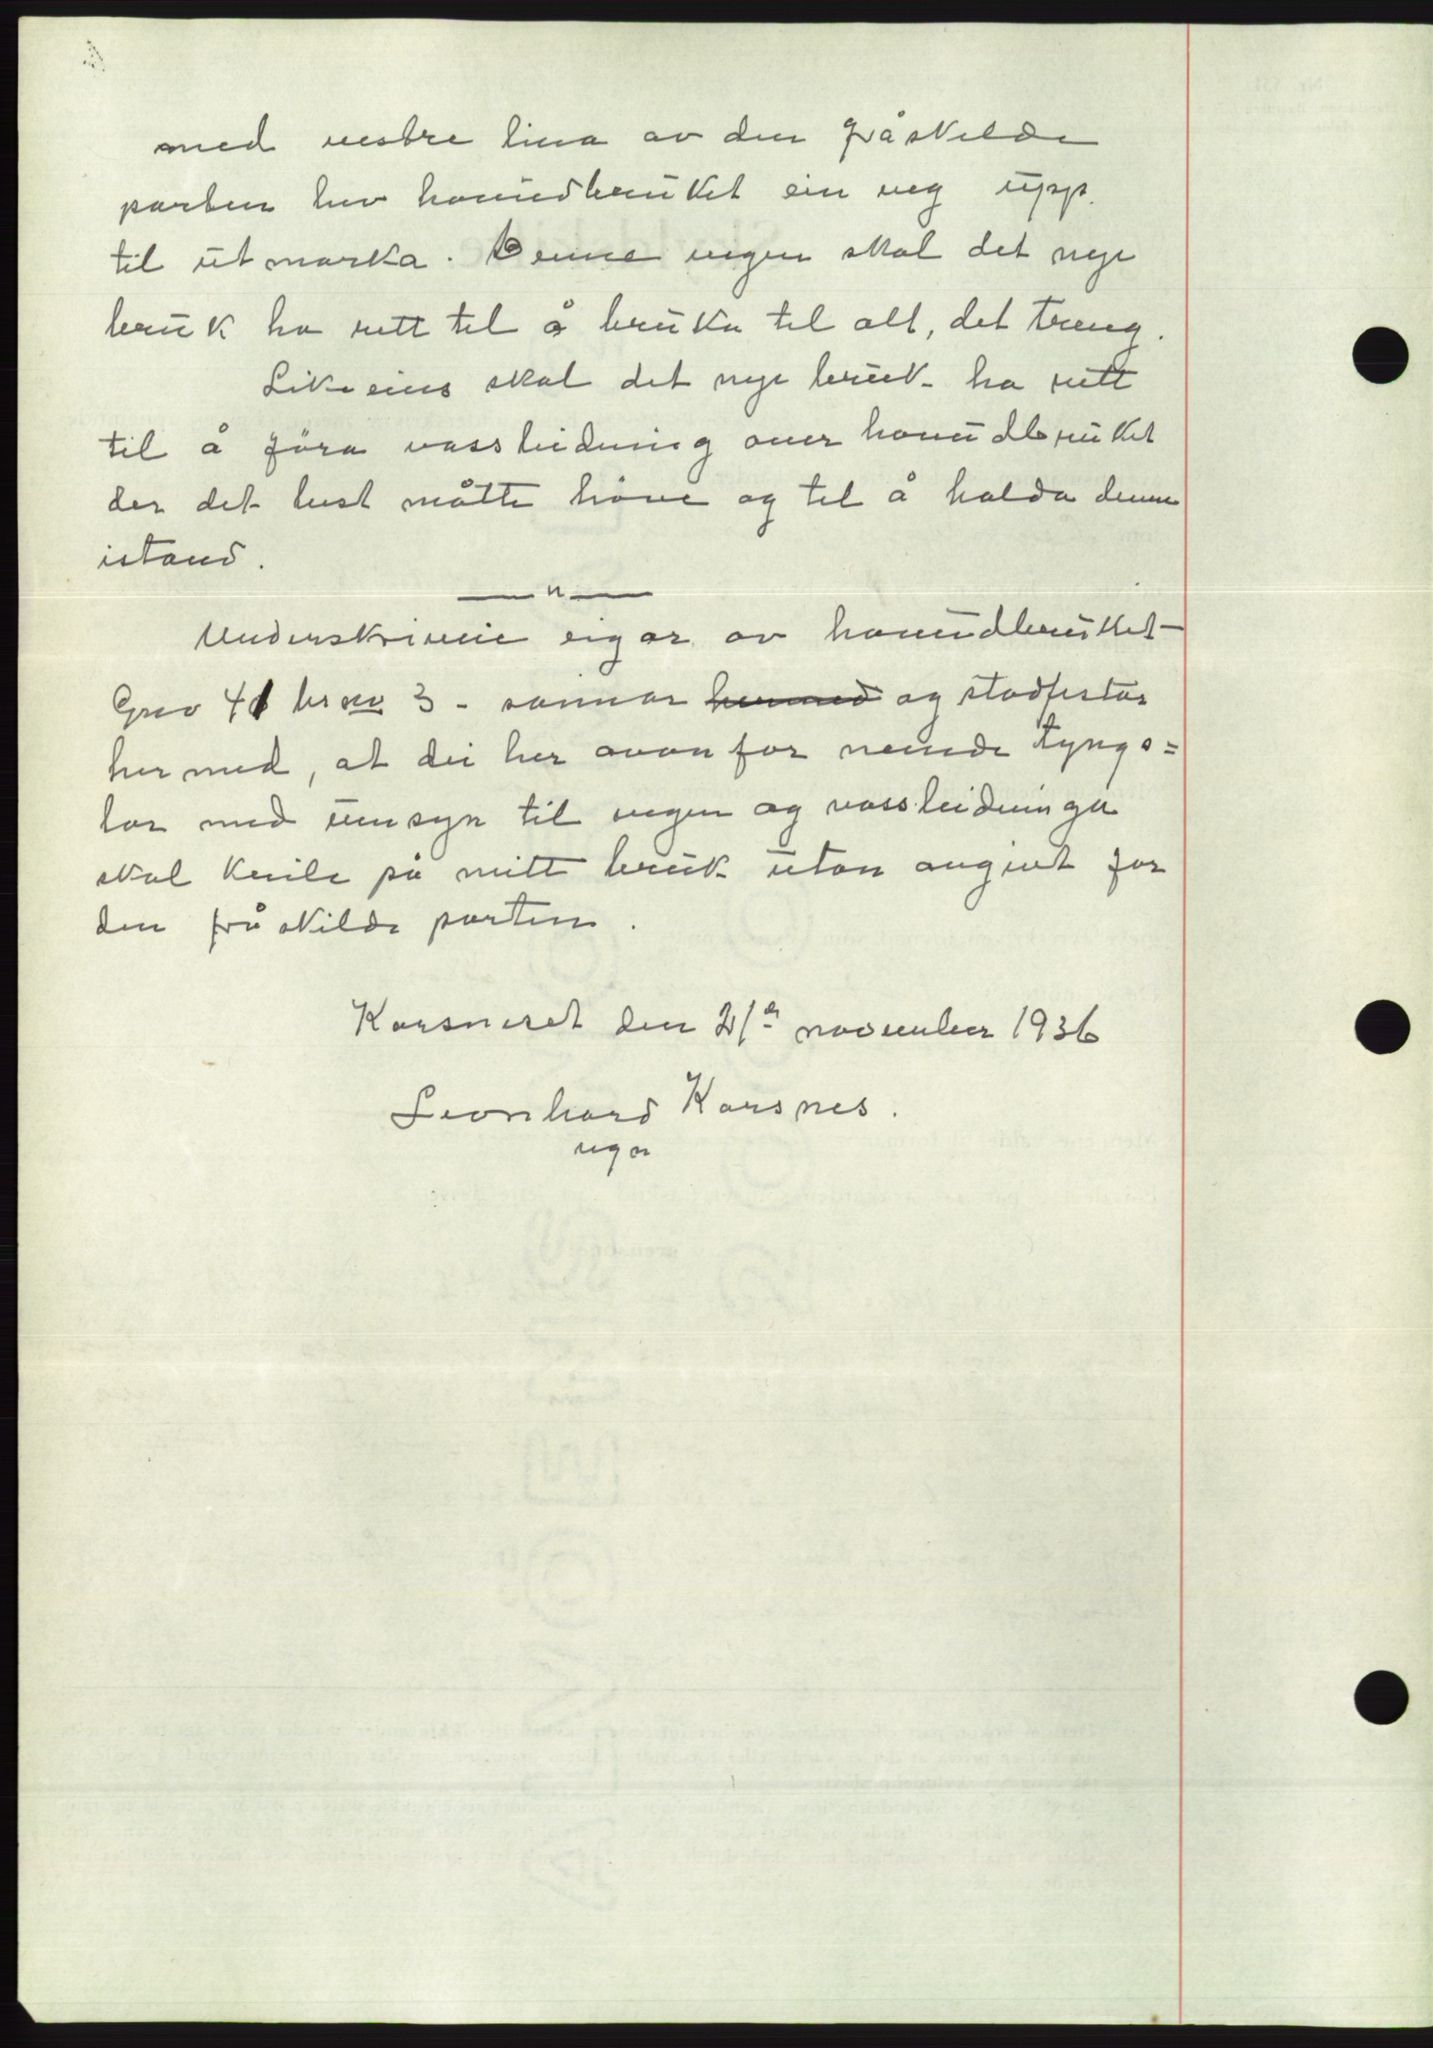 med vestre lina av den fråskilde
parten hev hovudbruket ein veg upp
til utmarka. Denne vegen skal det nye
bruk ha rett til å bruka til alt, det treng.
Likeeins skal det nye bruk ha rett
til å föra vassleidning over hovudbruket
der det best måtte höve og til å halda denne
istand.
—"—
Underskrivne eigar av hovudbruket –
Gnr 41 br nr 3 – sannar hermed og stadfestar
hermed, at dei her ovanfor nemnde tyngs=
lor med umsyn til vegen og vassleidninga
skal kvile på mitt bruk utan avgivt for
den fråskilde parten.
Korsneset den 21de november 1936
Leonhard Korsnes.
eigar